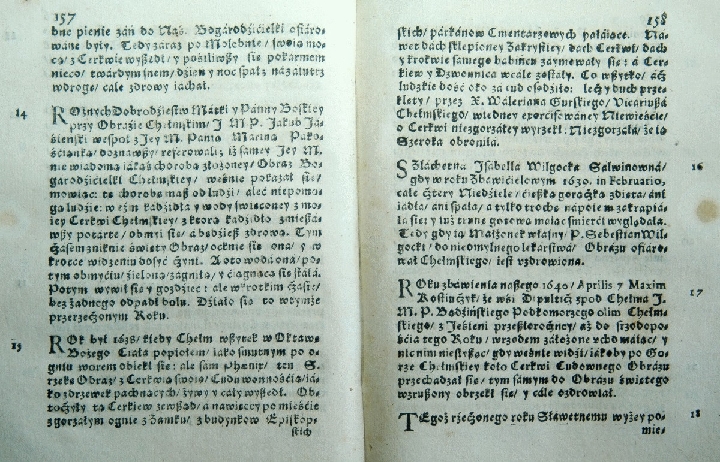 157
bne pienie zań do Nąś. Bogárodźićielki ofiáro-
wáne były. Tedy záraz po Molebnie / swoią mo-
cą / z Cerkwie wyszedł / y pośiliwszy się pokármem
nieco / twárdym snem / dźień y noc spał / á názáiutrz
w drogę / cále zdrowy iáchał.
14
ROżnych Dobrodźieystw Mátki y Pánny Boskiey
przy Obráźie Chełmskim / J M. P. Jákub Já-
śieński wespoł z Jey M. Pánią Máriną Páko-
ściánką / doznawszy / referowáli; iż sámey Jey M.
nie wiádomą iákąś chorobą złożoney / Obraz Bo-
gárodźićielki Chełmskiey / we śnie pokazał się /
mowiąc: tę chorobę masz od ludźi / áleć niepomo-
gą ludźie: weźm kádźidłá y wody święconey z mo-
iey Cerkwi Chełmskiey / z ktorą kádźidło zmiesza-
wszy potarte / obmyi się / á będźiesz zdrową. Tym
czásem zniknie święty Obraz / ocknie się oná / y w
krotce widzeniu dosyć czyni. A oto wodá oná / po-
tym obmyćiu / źielona / zágniłá / y ćiągnącą się stáłá.
Potym wywił się y gozdźiec: ále w krotkim czáśie /
bez żadnego odpadł bolu. Dźiało się to w tymże
przerzeczonym Roku.
15
ROk był 1638 / kiedy Chełm wszytek w Oktáwę
Bożego Ciáłá popiołem / iáko smutnym po o-
gniu worem obiekł się: ále sam Phænix / ten S.
rzekę Obraz / z Cerkwią swoią / Cudu wonnośćią / iá-
ko zdrzewek pachnących / żywy y cáły wyszedł. Ob-
toczyły tę Cerkiew zewsząd / á nawięcey po mieśćie
zgorzáłym ognie z Zamku / z budynkow Episkop-
skich
158
skich / párkánow Cmentarzowych páłáiące. Ná-
wet dách sklepioney Zákrystiey / dách Cerkwi / dách
y krokwie sámego bábińcu záymowáły się: á Cer-
kiew y Dzwonnicá w cále zostáły. Co wszytko / ácz
ludzkie bość oko zá cud osądźiło: lecz y duch prze-
klęty / przez X. Wáleriana Gurskiego / Vicáriuszá
Chełmskiego / w iedney exorcisowáney Niewieśćie /
o Cerkwi niezgorzáłey wyrzekł: Niezgorzáłá / że ią
Szeroka obroniłá.
16
SZláchetna Jsábellá Wilgocka Sálwinowna /
gdy w roku Zbáwićielowym 1630. in Februario,
cále cztery Niedźiele / ćięszką gorączką zdięta / áni
iádłá / áni spáłá / á tylko trochę nápoiem zákrapiá-
łá się; y iuż trunę gotową máiąc śmierći wyglądáłá.
Tedy gdy ią Małżonek własny / P. Sebestian Wil-
gocki / do nieomylnego lekárstwá / Obrázu ofiáro-
wał Chełmskiego / iest vzdrowiona.
17
ROku zbáwienia nászego 1640 / Aprilis 7 Maxim
Kostiuczyk / że wśi Dipultycz zpod Chełmá J.
M. P. Bądzińskiego Podkomorzego olim Chełm-
skiego / z Jeśieni przeszłoroczney / áż do śrzodopo-
śćia tego Roku / wrzodem záłożone vcho máiąc / y
nic nim niesłysząc / gdy we śnie widźi / iákoby po Go-
rze Chełmskiey koło Cerkwi Cudownego Obrázu
przechadzał się / tym sámym do Obrázu świętego
wzruszony obrzekł się / y cále ozdrowiał.
18
TEgoż rzeczonego roku Sławetnemu wyżey po-
mie-